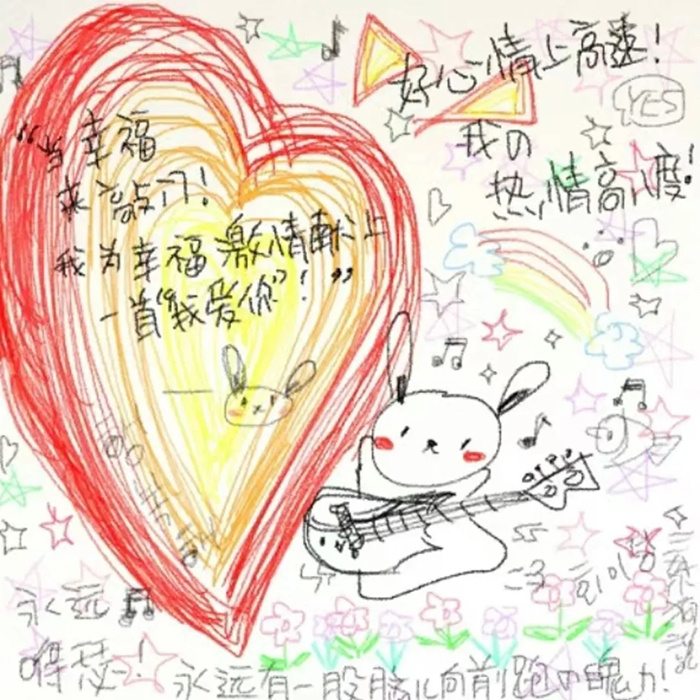 好心情上高速!
YES
我の
热情高八度!
"当幸福
来敲门!
我为幸福激情献上
一首"我爱你"! "
永远
嘚瑟~!
永远有一股脑儿向前跑の魄力!